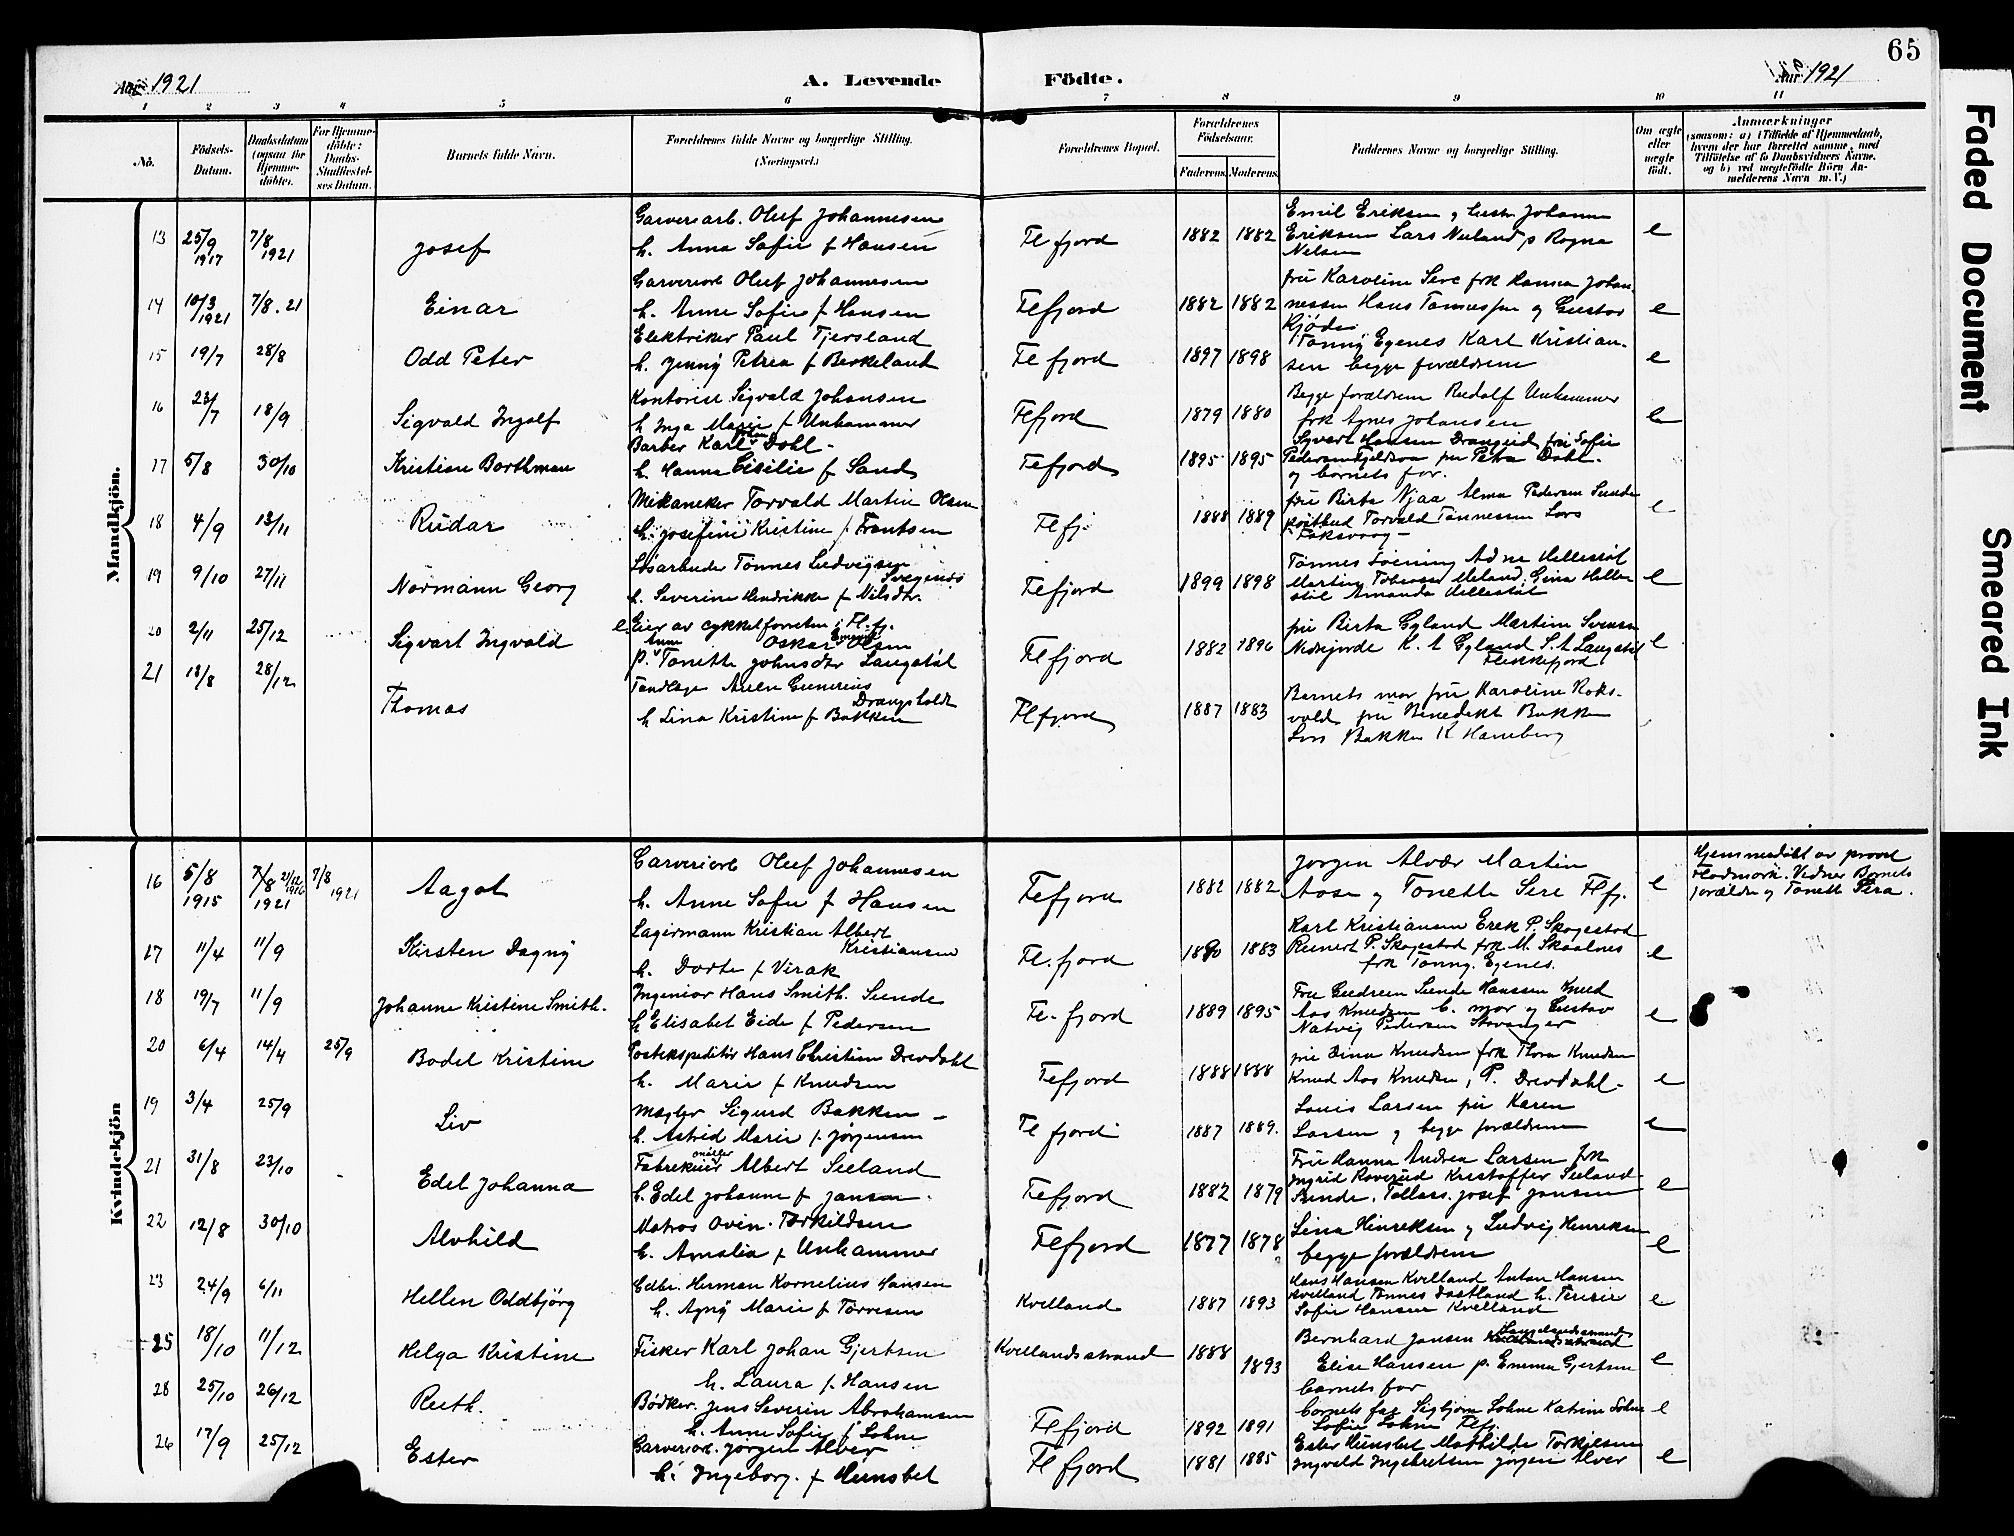 65
Aar 1921
A. Levende
Födte.
Aar 1921
1 2 3 4 5 6 7 8 9 10 11
No.
Födsels-Datum.
Daabsdatum (ogsaa for Hjemme-döbte).
For Hjemme-döbte: Daabs-Stadfæstel-ses Datum.
Barnets fulde Navn.
Forældrenes fulde Navne og borgerlige Stilling. (Næringsvei.)
Forældrenes Bopæl.
Forældrenes Födselsaar.
Faderens. Moderens.
Faddernes Navne og borgerlige Stilling.
Om ægte eller uægte födt.
Anmærkninger (saasom: a) i Tilfælde af Hjemmedaab, hvem der har forrettet samme, med Tilföielse af to Daabsvidners Navne, og b) ved uægtefödte Börn An-melderens Navn m. V.)
Mandkjön.
13 25/9 1917 7/8 1921 Josef
Garveriarb. Oluf Johannesen
h. Anna Sofie f Hansen
Flefjord 1882 1882
Emil Eriksen g Gustv Johanne
Eriksen Lars Neuland p Ragna
Nelsen
e
14 10/3 1921 7/8.21 Einar
Garveriarb Oluf Johannesen
h. Anne Sofie f Hansen
Flefjord 1882 1882
fru Karoline Sire frk Hanna Johan
nessen Hans Tønnessen og Gustav
Kjøde
e
15 19/7 28/8 Odd Peter
Elektriker Paul Tjersland
h. Jenny Petrea f Berkeland
Flefjord 1897 1898
Tönny Egenes Karl Kristian-
sen begge forældrene
e
16 23/7 18/9 Sigvald Ingolf
Kontorist Sigvald Johansen
h Inga Marie f Unhammer
Flefjord 1879 1880
Begge forældrene Rudolf Unhammer
frk Agnes Johansen
e
17 5/8 30/10 Kristian Borthman
Barber Karl Dahl -
h. Hanna Cicilie f Sand
Flefjord 1895 1895
Sigvart Hansen Drangeid fru Sofie
Pedersen fru Petra Dahl.
og barnets far.
18 4/9 13/11 Rudar
Mekaneker Torvald Martin Olsen
h. Josefine Kristine f Frantsen
Flefj. 1888 1889
fru Birte Njaa Alma Pedersen Sunde
Torvald Tønnessen Lars
Faksvaag -
e
19 9/10 27/11 Normann Georg
Løsarbeider Tønnes Ludvigsen
h. Severine Hendrikke f Nilsdtr.
Flefjord 1899 1898
Tønnes Adne Hellestøl
Martin Tobiassen Gina Helle
støl Amanda Hellestøl
e
20 2/11 25/12 Sigvart Ingvald
Eier av cykkelforretn i Fl.fj.
Oskar Olsen
Anne Tonette Johnsdtr Langstøl
Flefjord 1882 1896
fru Birte Gyland Martin Svensen
K. A Gyland S. A Langstøl
Flekkefjord
e
21 13/8 28/12 Thomas
Tandlæge Gunerius
Drangsholdt
h Lina Kristine f Bakken
Flefjord 1887 1883
Barnets mor fru Karoline Roks-
vold fru Benedikt Bakken
Lars Bakken K Haneberg
Kvindekjön
16 5/8 1915 7/8 1921 21/12 1916 7/8 1921 Aagot
Garveriarb Oluf Johannesen
h. Anne Sofie f Hansen
Flefjord 1882 1882
Jørgen Alvær Martin
Aase g Tonette Sire Flfj.
e
Hjemmedøbt av provst
Flodmark. Vidner Barnets
forældre g Tonette Sira.
17 11/4 11/9 Kirsten Dagny
Lagermann Kristian Albert
Kristiansen
h. Dorte f Virak
Fl.fjord 1880 1883
Karl Kristiansen Erek P. Skogestad
Reinert P. Skogestad frk M. Skaalnes
frk Tönny Egenes.
e
18 19/7 11/9 Johanne Kristine Smith.
Ingeniør Hans Smith. Sunde
h Elisabet Eide f Pedersen
Fl-fjord 1889 1895
Fru Gudrun Sunde Hanssen Knud
Aas Knudsen b. mor og Gustav
Natvig Pedersen Stavanger
e
20 6/4 14/4 25/9 Bodel Kristine
Postekspeditør Hans Christian Drevdahl
h. Marie f Knudsen
Flefjord 1888 1888
fru Dina Knudsen frk Thora Knudsen
Knud Aas Knudsen, P. Drevdahl-
e
19 3/4 25/9 Liv
Mægler Sigurd Bakken -
h. Astrid Marie f. Jørgensen
Flefjord 1887 1889.
Louis Larsen fru Karen
Larsen g begge forældrene
e
21 31/8 23/10 Edel Johanna
Albert Seeland
h. Edel Johanne f Jansen.
Flefjord 1882 1879
Fru Hanna Andrea Larsen frk
Ingrid Roverud Kristoffer Seeland
Josef Jansen
e
22 12/8 30/10 Alvhild
Matros Ovin. Torkildsen
h. Amalia f Unhammer
Flefjord 1877 1878
Lina Hinreksen g Ludvig Henreksen
begge forældrene
e
23 24/9 6/11 Hellen Oddbjörg
Herman Kornelius Hansen
h. Agny Marie f Torresen
Kvelland 1887 1893
Hans Hansen Kvelland Anton Hansen
Kvelland Tønnes h. Teresie
Sofie Hansen Kvelland
e
25 18/10 11/12 Helga Kristine
Fisker Karl Johan Gjertsen
h. Laura f. Hansen
Kvellandsstrand 1888 1893
Bernhard Jansen
Elise Hansen p. Emma Gjertsen
barnets far
e
28 25/10 26/12 Ruth.
Bödker. Jens Severin Abrahamsen
h. Anne Sofie f Lohne
Flefjord 1892 1891
barnets far Sigbjørn Lohne Katrine Lohne
Sofie Lohne Flfj.
e
26 17/9 25/12 Ester
Garveriarb. Jørgen Alver
h. Ingeborg. f Hunsbet
Flefjord 1881 1885
Ester Hunsbet Mathilde Torkjelsen
Ingvald Ingebretsen Jørgen Alver
e
Faded Document
Smeared Ink